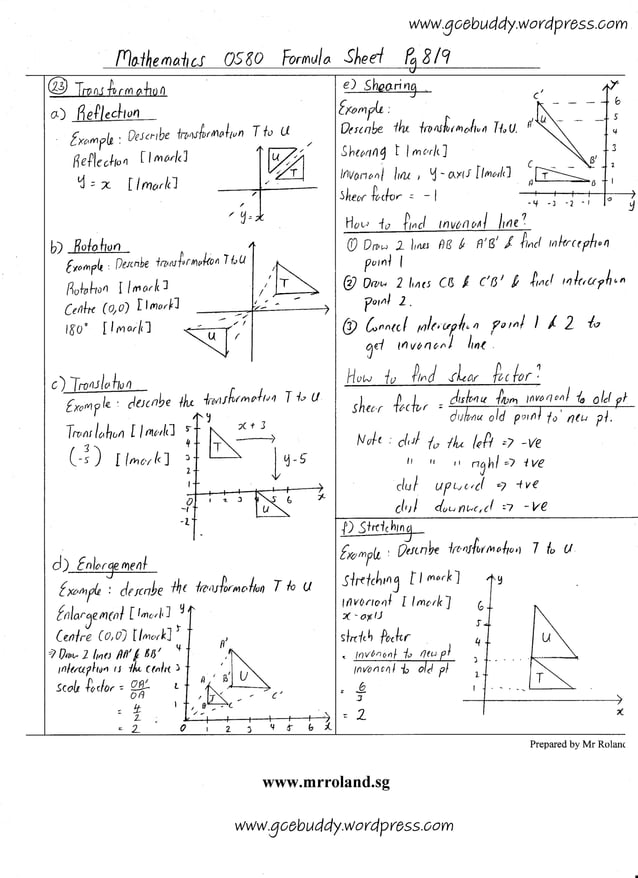 www.gcebuddy.wordpress.com
Mathematics 0580 Formula Sheet Pg 8/9
23 Transformation
a) Reflection
Example: Describe transformation T to U
Reflection [1mark]
y = x [1mark]
U
T
y = x
b) Rotation
Example: Describe transformation T to U
Rotation [1mark]
Centre (0,0) [1mark]
180° [1mark]
T
U
c) Translation
Example: describe the transformation T to U
Translation [1mark]
(3
-5) [1mark]
y
x + 3
y - 5
5
4
3
2
1
-1
-2
T
1 2 3 4 5 6 x
U
d) Enlargement
Example: describe the transformation T to U
Enlargement [1mark]
Centre (0,0) [1mark]
⇒ Draw 2 lines AA' & BB'
interception is the centre
scale factor = OA'/OA
= 4/2
= 2
y
5
4
3
2
1
A'
A B' U C'
B T C
0 1 2 3 4 5 6 x
e) Shearing
Example:
Describe the transformation T to U.
Shearing [1mark]
Invariant line, y-axis [1mark]
shear factor = -1
y
C'
A' U
B'
C
A T B
6
5
4
3
2
1
0
-4 -3 -2 -1 y
How to find invariant line?
① Draw 2 lines AB & A'B' & find interception
point 1
② Draw 2 lines CB & C'B' & find interception
point 2.
③ Connect interception point 1 & 2 to
get invariant line.
How to find shear factor?
shear factor = distance from invariant to old pt
distance old point to new pt.
Note: dist to the left ⇒ -ve
" " " right ⇒ +ve
dist upward ⇒ +ve
dist downward ⇒ -ve
f) Stretching
Example: Describe transformation T to U
Stretching [1mark]
invariant [1mark]
x-axis
stretch factor
= invariant to new pt
invariant to old pt
= 6/3
= 2
y
6
5
4
3
2
1
U
T
x
Prepared by Mr Roland
www.mrroland.sg
www.gcebuddy.wordpress.com